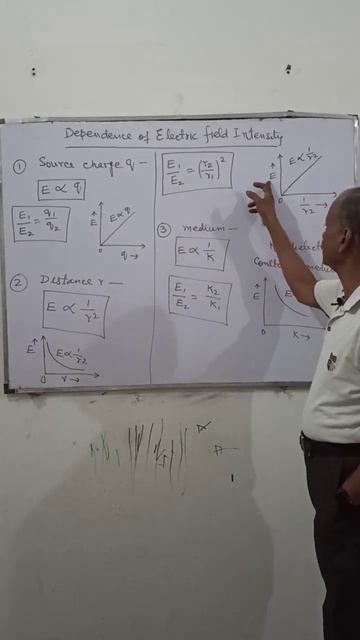 Dependence of Electric field Intensity
① Source charge q -
E ∝ q
E₁/E₂ = q₁/q₂
E
E ∝ q
0
q →
② Distance r —
E ∝ 1/r²
E
E ∝ 1/r²
0
r →
E₁/E₂ = (r₂/r₁)²
E
E ∝ 1/r²
0
1/r²
③ medium —
E ∝ 1/K
E₁/E₂ = K₂/K₁
E
0
K →